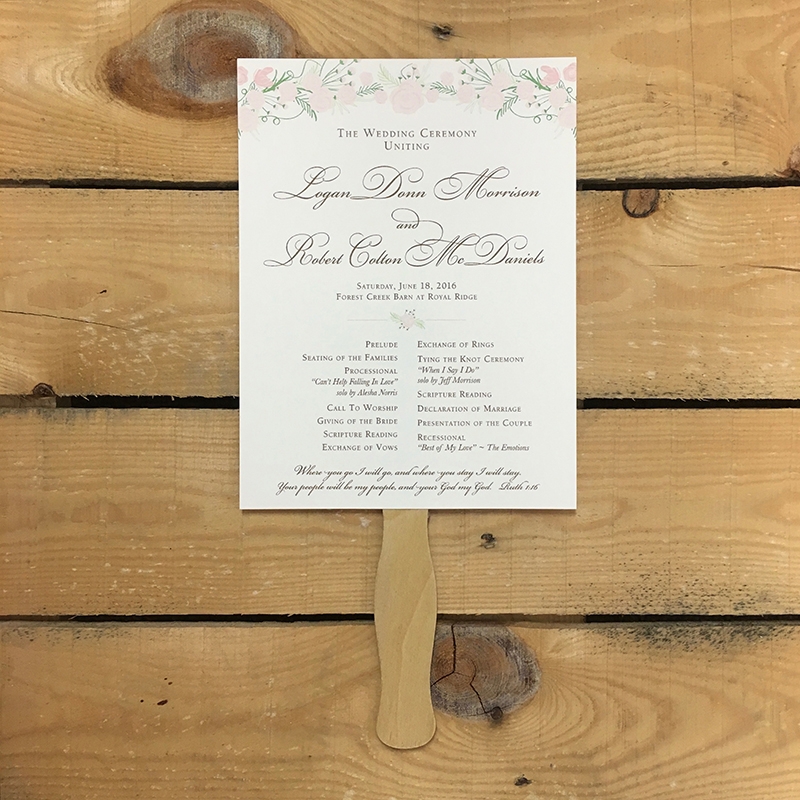 The Wedding Ceremony
Uniting
Logan Donn Morrison
and
Robert Colton McDaniels
Saturday, June 18, 2016
Forest Creek Barn at Royal Ridge
Prelude
Seating of the Families
Processional
"Can't Help Falling In Love"
solo by Alesha Norris
Call To Worship
Giving of the Bride
Scripture Reading
Exchange of Vows
Exchange of Rings
Tying the Knot Ceremony
"When I Say I Do"
solo by Jeff Morrison
Scripture Reading
Declaration of Marriage
Presentation of the Couple
Recessional
"Best of My Love" ~ The Emotions
Where you go I will go, and where you stay I will stay.
Your people will be my people, and your God my God. Ruth 1:16